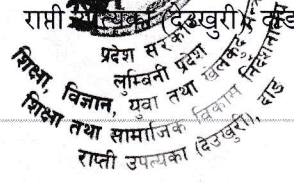 राप्ती उपत्यका (देउखुरी), दाङ
प्रदेश सरकार
लुम्बिनी प्रदेश
शिक्षा, विज्ञान, युवा तथा खेलकुद
शिक्षा तथा सामाजिक विकास निर्देशनालय
राप्ती उपत्यका (देउखुरी), दाङ